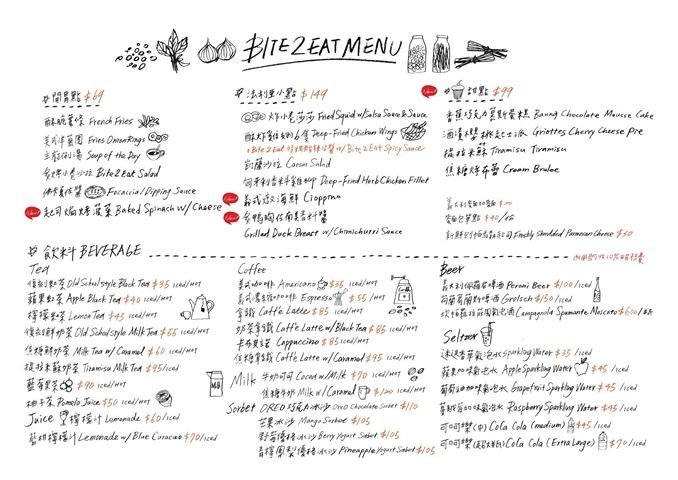 BITE2EAT MENU
開胃點 $69
酥脆薯條 French Fries
美式洋蔥圈 Fries Onion Rings
主廚例湯 Soup of the Day
Bite2Eat Salad
佛卡夏佐醬 Focaccia/Dipping Sauce
起司焗烤菠菜 Baked Spinach w/ Cheese
小點 $149
Fried Squid w/ Salsa Sauce & Sauce
Deep-Fried Chicken Wings
w/ Bite2Eat Spicy Sauce
凱薩沙拉 Caesar Salad
Deep-Fried Herb Chicken Fillet
義式 海鮮 Cioppino
炙鴨胸佐南美香料醬
Grilled Duck Breast w/ Chimichurri Sauce
甜點 $99
香蕉巧克力慕斯蛋糕 Banana Chocolate Mousse Cake
酒漬櫻桃起士派 Griottes Cherry Cheese Pie
提拉米蘇 Tiramisu Tiramisu
焦糖烤布蕾 Cream Brulee
$20
$40
Freshly Shredded Parmesan Cheese $30
飲料 BEVERAGE
10%服務費
Tea
復刻紅茶 Old School style Black Tea $35 iced/HOT
蘋果紅茶 Apple Black Tea $40 iced/HOT
檸檬紅茶 Lemon Tea $45 iced/HOT
復刻鮮奶茶 Old School style Milk Tea $55 iced/HOT
焦糖鮮奶茶 Milk Tea w/ Caramel $60 iced/HOT
提拉米蘇奶茶 Tiramisu Milk Tea $95/iced
藍莓果茶 $90 iced/HOT
柚子茶 Pomelo Juice $50 iced/HOT
Juice 檸檬汁 Lemonade $60/iced
藍柑檸檬汁 Lemonade w/ Blue Curacao $70/iced
Coffee
美式咖啡 Americano $35 iced/HOT
美式濃縮咖啡 Espresso $55/HOT
拿鐵 Caffè Latte $85 iced/HOT
奶茶拿鐵 Caffè Latte w/ Black Tea $85 iced/HOT
卡布其諾 Cappuccino $85 iced/HOT
焦糖拿鐵 Caffè Latte w/ Caramel $95 iced/HOT
Milk 牛奶可可 Cocoa w/ Milk $70 iced/HOT
焦糖牛奶 Milk w/ Caramel iced/HOT
Sorbet OREO巧克力冰沙 Oreo Chocolate Sorbet $110
芒果冰沙 Mango Sorbet $105
野莓優格冰沙 Berry Yogurt Sorbet $105
香檸鳳梨優格冰沙 Pineapple Yogurt Sorbet $105
Beer
義大利佩羅尼啤酒 Peroni Beer $100/iced
荷蘭葛蘭斯啤酒 Grolsch $150/iced
Campagnola Spumante Moscato $600
Seltzer
沛綠蒂氣泡水 Sparkling Water $35/iced
蘋果口味氣泡水 Apple Sparkling Water $45/iced
葡萄柚口味氣泡水 Grapefruit Sparkling Water $45/iced
蔓越莓口味氣泡水 Raspberry Sparkling Water $45/iced
可口可樂(中) Coca Cola (medium) $45/iced
可口可樂 Coca Cola (Extra Large) $70/iced